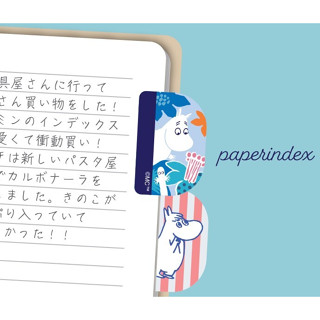 具屋さんに行って
さん買い物をした！
ミンのインデックス
愛くて衝動買い！
は新しいパスタ屋
でカルボナーラを
しました。きのこが
入っていて
かった！！
©MC™
paperindex